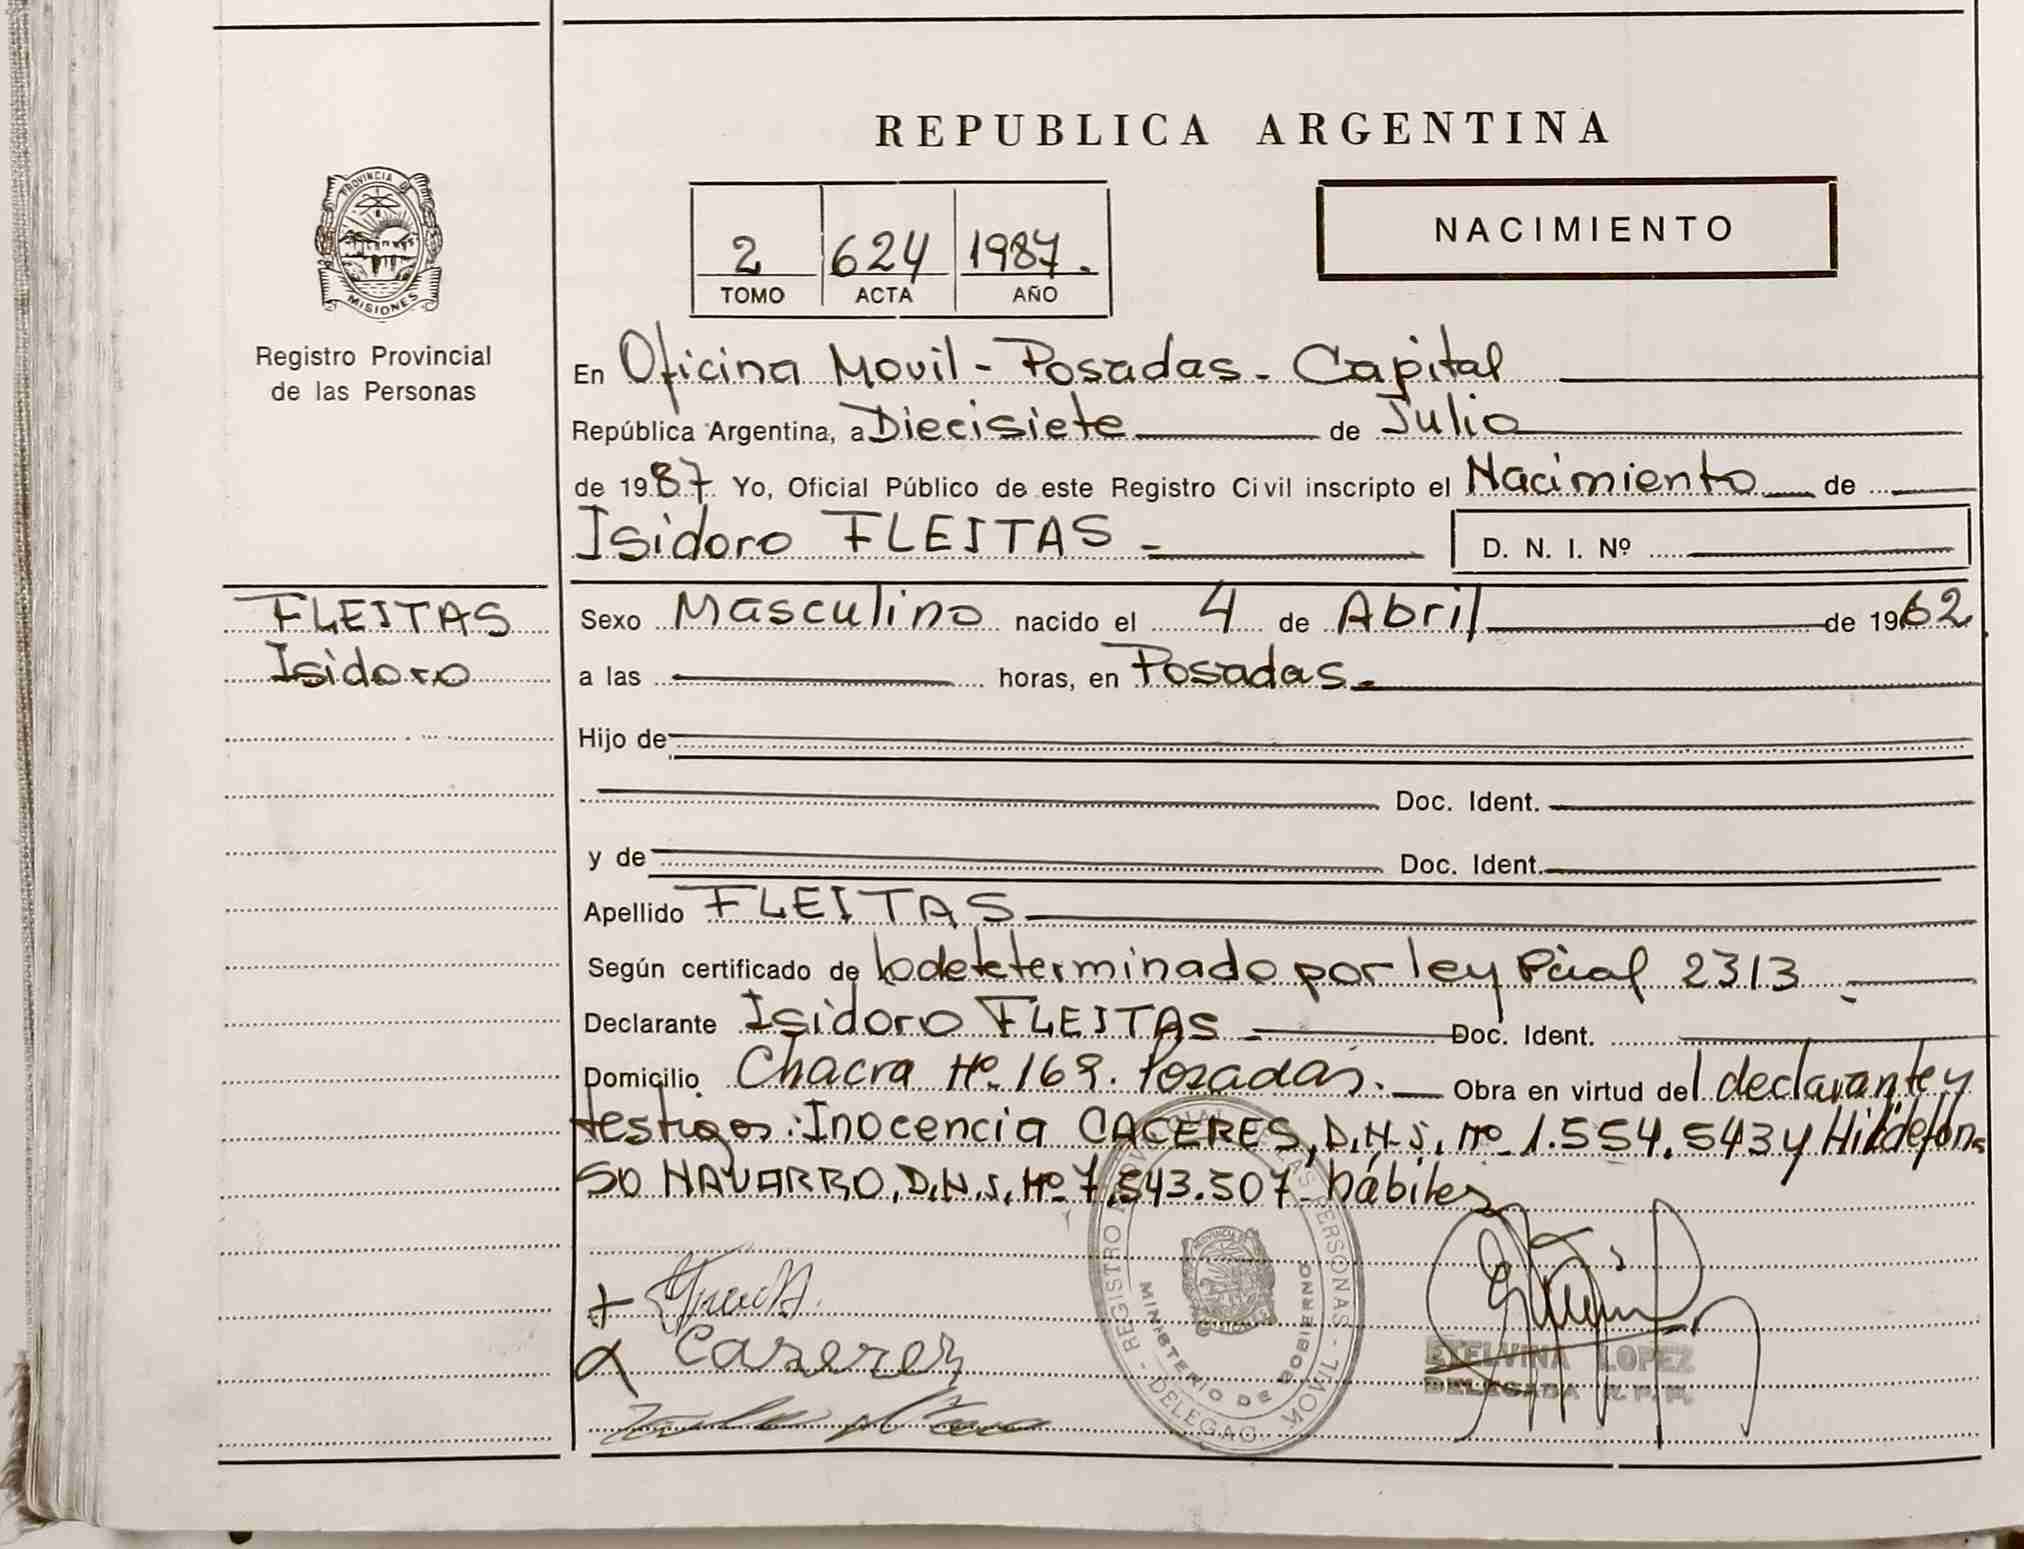 REPUBLICA ARGENTINA
PROVINCIA DE
MISIONES
Registro Provincial
de las Personas
NACIMIENTO
2 624 1987.
TOMO ACTA AÑO
En Oficina Movil - Posadas - Capital
República Argentina, a Diecisiete de Julio
de 1987. Yo, Oficial Público de este Registro Civil inscripto el Nacimiento de
Isidoro FLEITAS - D. N. I. Nº
FLEITAS
Isidoro
Sexo Masculino nacido el 4 de Abril de 1962
a las horas, en Posadas.
Hijo de
Doc. Ident.
y de Doc. Ident.
Apellido FLEITAS
Según certificado de lo deteterminado por ley Pcial 2313
Declarante Isidoro FLEITAS - Doc. Ident.
Domicilio Chacra Nº 169. Posadas. Obra en virtud del declarante y
testigos: Inocencia CACERES, D.N.I. Nº 1.554.543 y Hildefon
SO NAVARRO, D.N.I. Nº 7.543.507 - hábiles
REGISTRO PROVINCIAL DE LAS PERSONAS - MOVIL
MINISTERIO DE GOBIERNO
Caseres
ETELVINA LOPEZ
DELEGADA R. P. P.